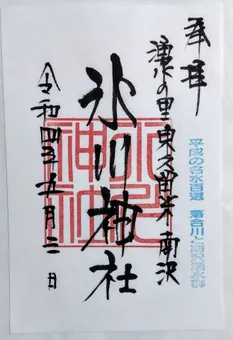 奉拝
平成の名水百選 落合川と南沢湧水群
湧水の里東久留米南沢
氷川神社
氷川神社
令和四年五月二日